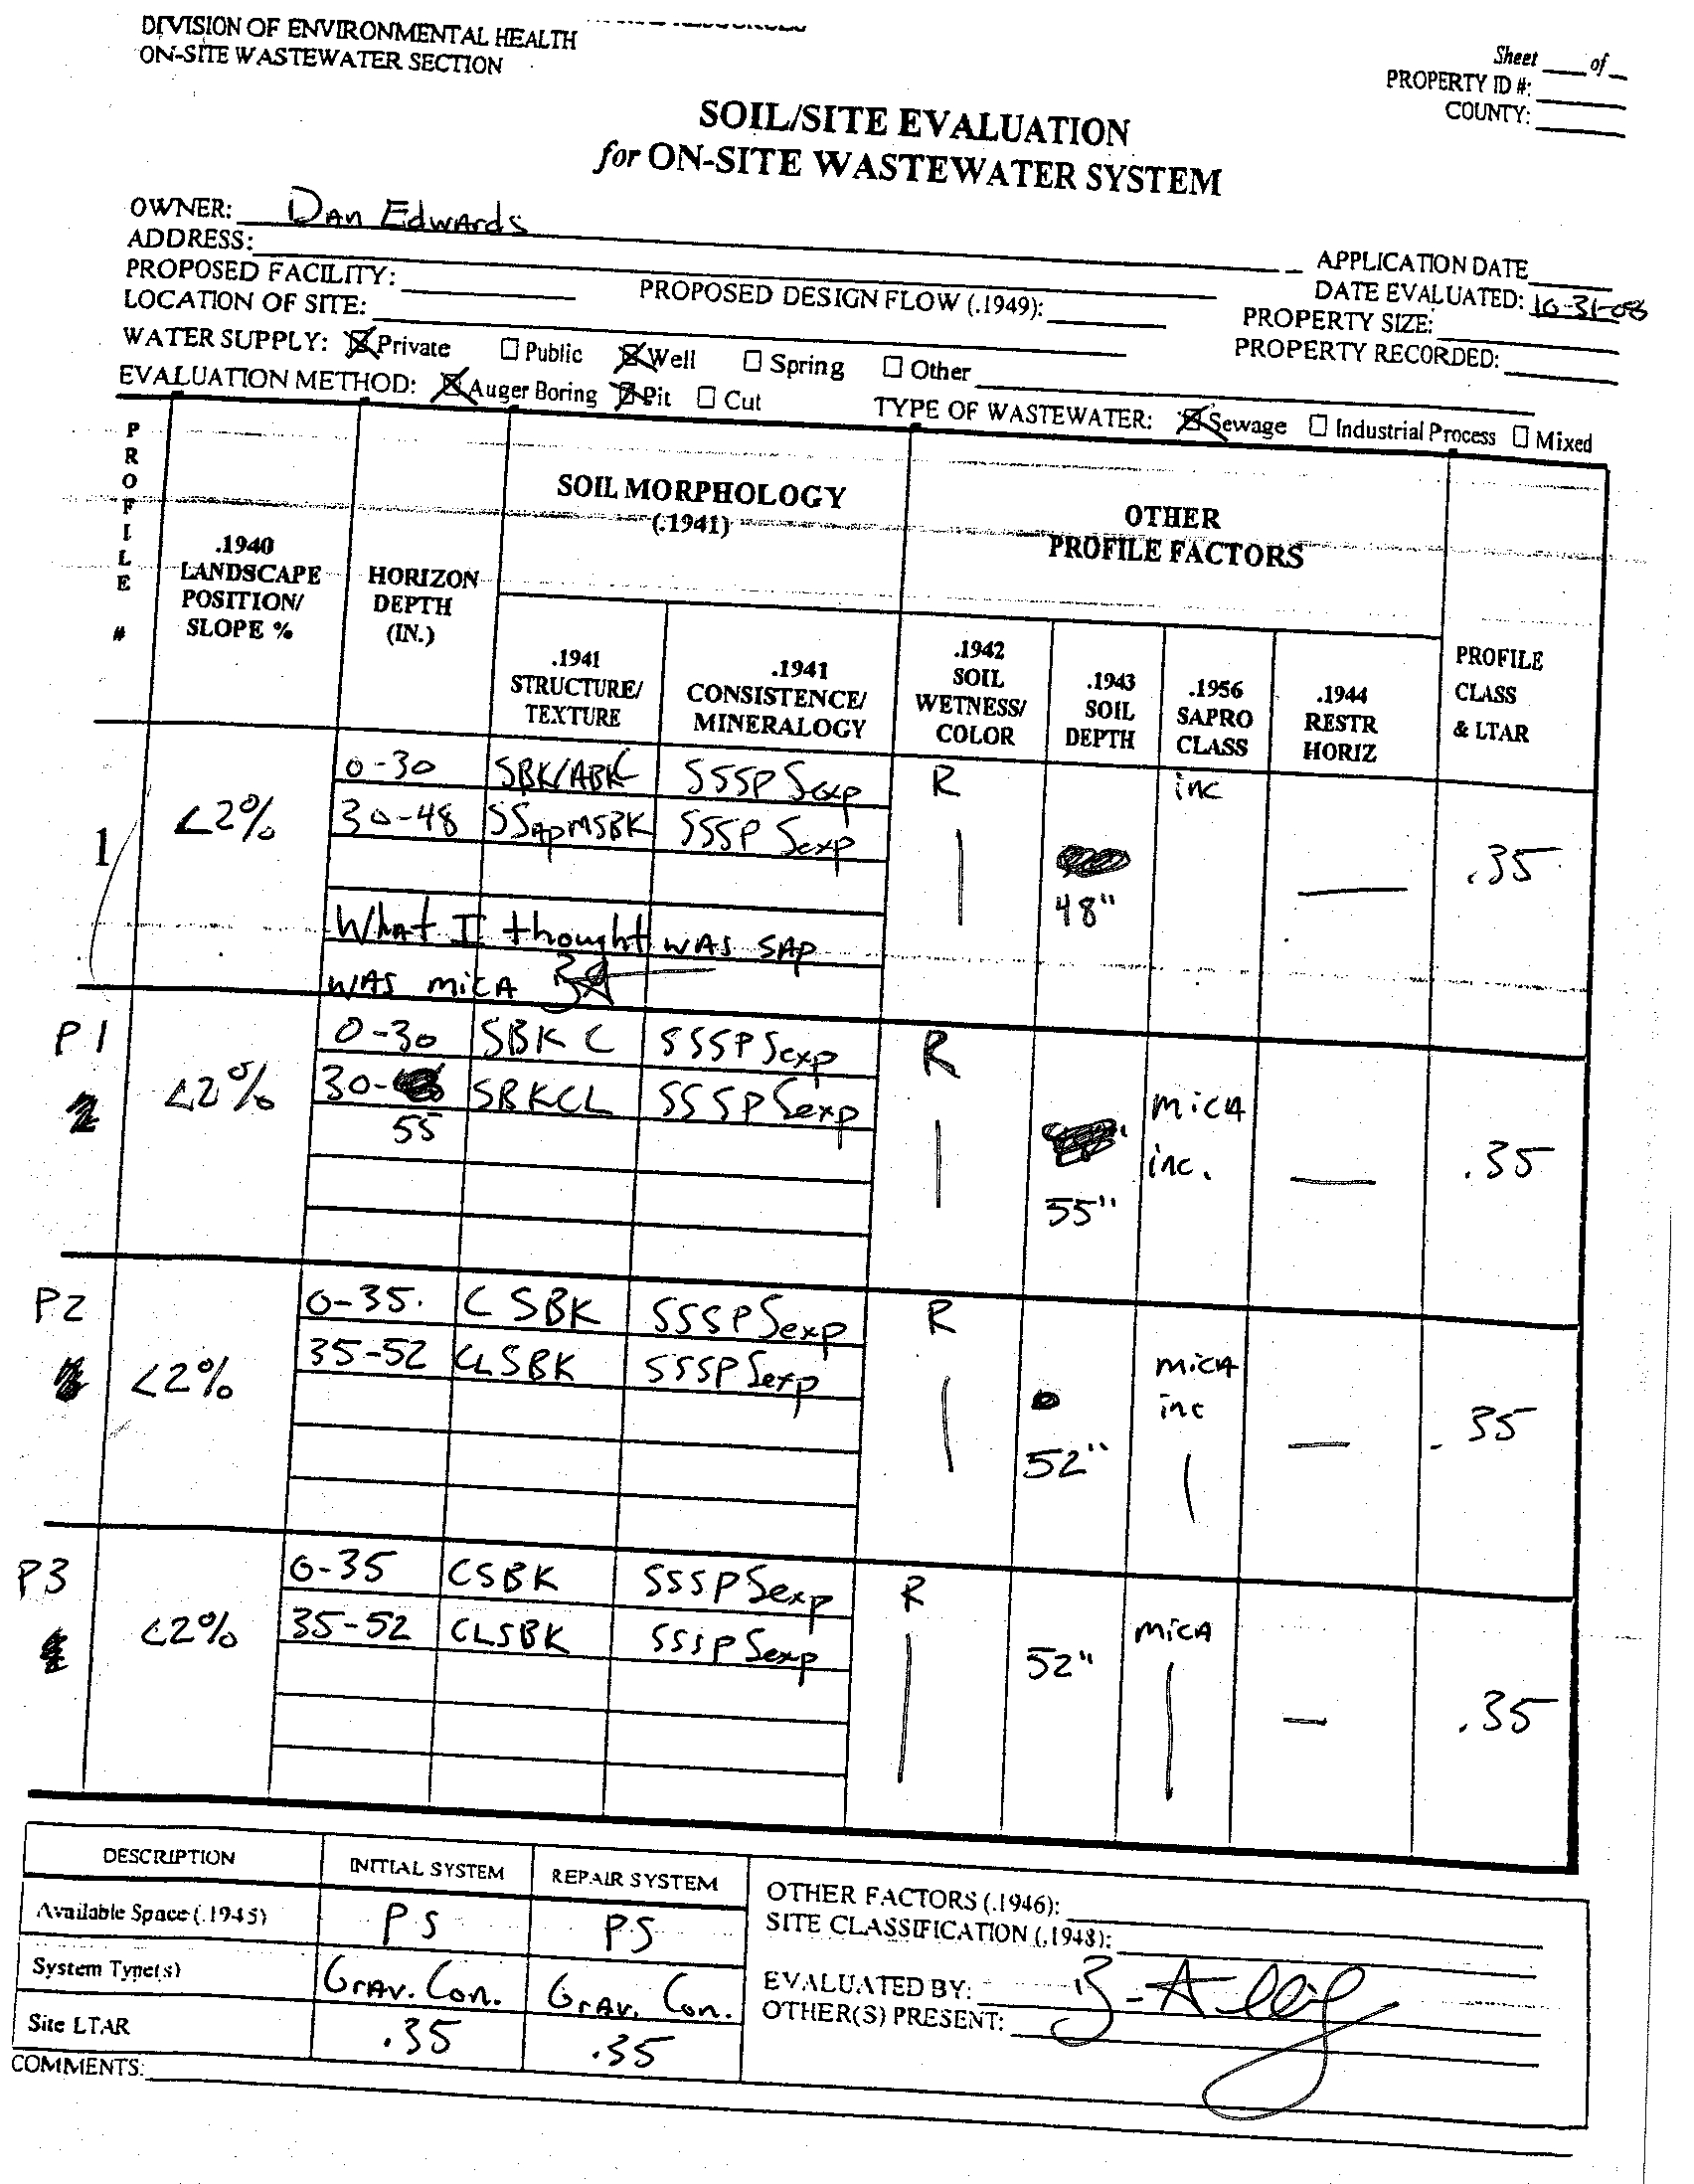 DIVISION OF ENVIRONMENTAL HEALTH
ON-SITE WASTEWATER SECTION
Sheet ____ of __
PROPERTY ID #:
COUNTY:
SOIL/SITE EVALUATION
for ON-SITE WASTEWATER SYSTEM
OWNER: Dan Edwards
ADDRESS:
APPLICATION DATE
PROPOSED FACILITY:
PROPOSED DESIGN FLOW (.1949):
DATE EVALUATED: 10-31-06
LOCATION OF SITE:
PROPERTY SIZE:
WATER SUPPLY: ☒ Private ☐ Public ☒ Well ☐ Spring ☐ Other
PROPERTY RECORDED:
EVALUATION METHOD: ☒ Auger Boring ☒ Pit ☐ Cut
TYPE OF WASTEWATER: ☒ Sewage ☐ Industrial Process ☐ Mixed
PROFILE #
.1940 LANDSCAPE POSITION/ SLOPE %
HORIZON DEPTH (IN.)
SOIL MORPHOLOGY (.1941)
OTHER PROFILE FACTORS
.1941 STRUCTURE/ TEXTURE
.1941 CONSISTENCE/ MINERALOGY
.1942 SOIL WETNESS/ COLOR
.1943 SOIL DEPTH
.1956 SAPRO CLASS
.1944 RESTR HORIZ
PROFILE CLASS & LTAR
1 <2% 0-30 SBK/ABK C SSSP Sexp R 48" inc — .35
30-48 SSapMSBK SSSP Sexp
What I thought was sap
was mica BA
P1 <2% 0-30 SBK C SSSP Sexp R 55" mica inc. — .35
30-55 SBKCL SSSP Sexp
P2 <2% 0-35. C SBK SSSP Sexp R 52" mica inc — .35
35-52 CLSBK SSSP Sexp
P3 <2% 0-35 CSBK SSSP Sexp R 52" mica — .35
35-52 CLSBK SSSP Sexp
DESCRIPTION INITIAL SYSTEM REPAIR SYSTEM
Available Space (.1945) PS PS
System Type(s) Grav. Con. Grav. Con.
Site LTAR .35 .35
OTHER FACTORS (.1946):
SITE CLASSIFICATION (.1948):
EVALUATED BY:
OTHER(S) PRESENT:
COMMENTS: